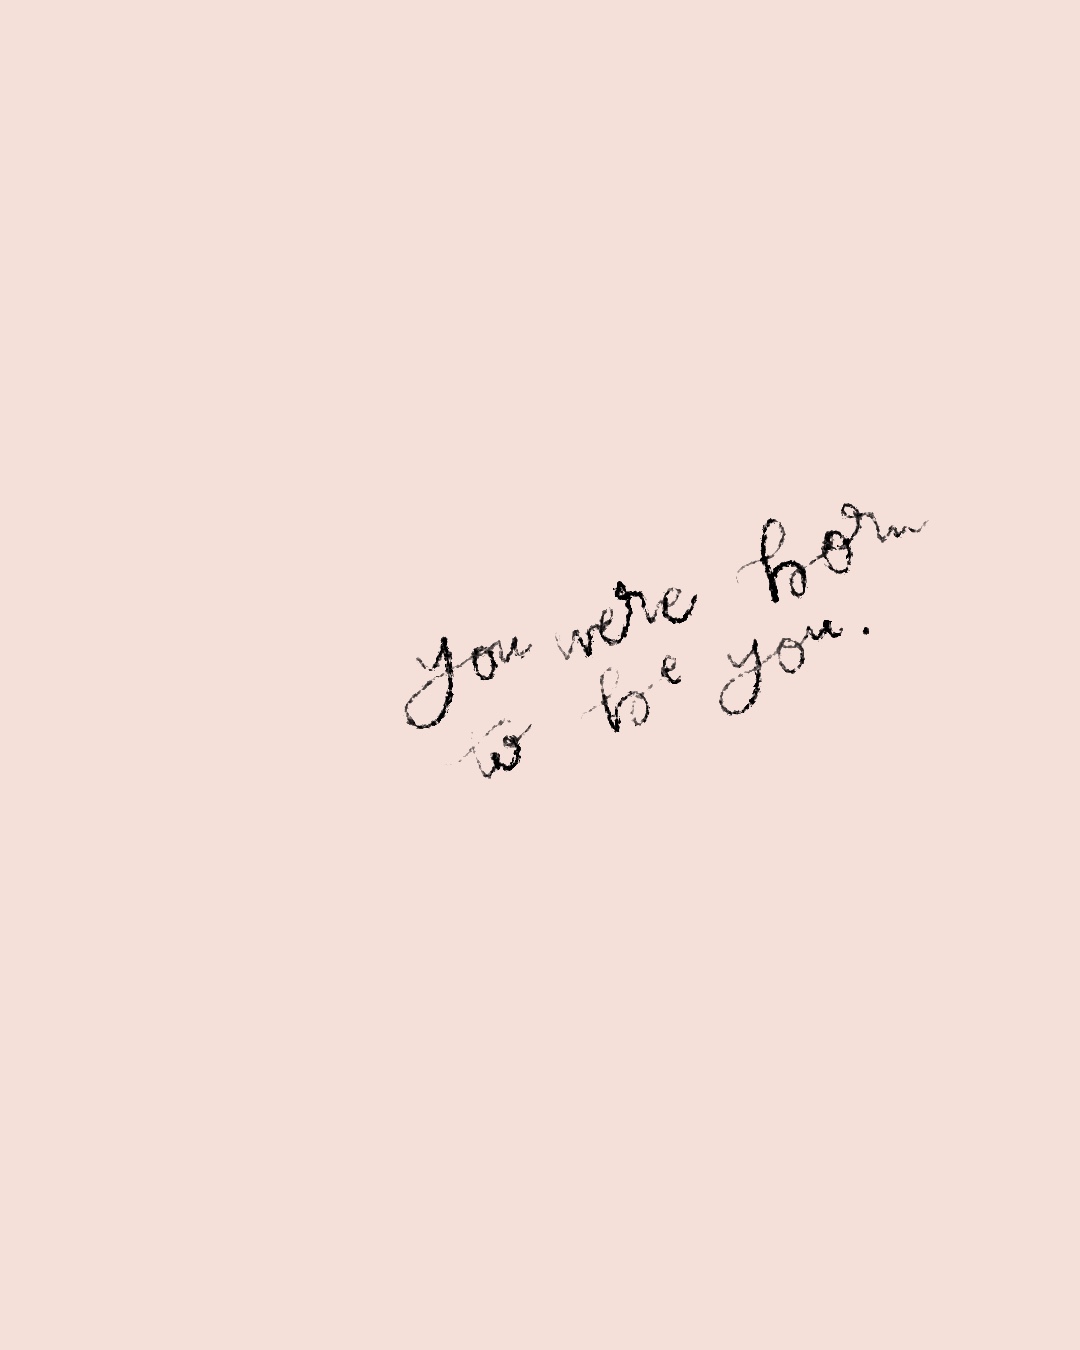 you were born
to be you.